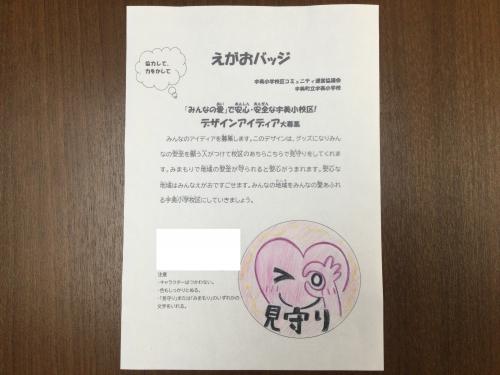 協力して、
力をかして
えがおバッジ
宇美小学校区コミュニティ運営協議会
宇美町立宇美小学校
「みんなの愛」で安心・安全な宇美小校区!
デザインアイディア大募集
みんなのアイディアを募集します。このデザインは、グッズになりみん
なの安全を願う人がつけて校区のあちらこちらで見守りをしてくれま
す。みまもりで地域の安全が守られると安心がうまれます。安心な
地域はみんなえがおですごせます。みんなの地域をみんなの愛あふれ
る宇美小学校区にしていきましょう。
注意
・キャラクターはつかわない。
・色もしっかりとぬる。
・「見守り」または「みまもり」のいずれかの
文字をいれる。
見守り